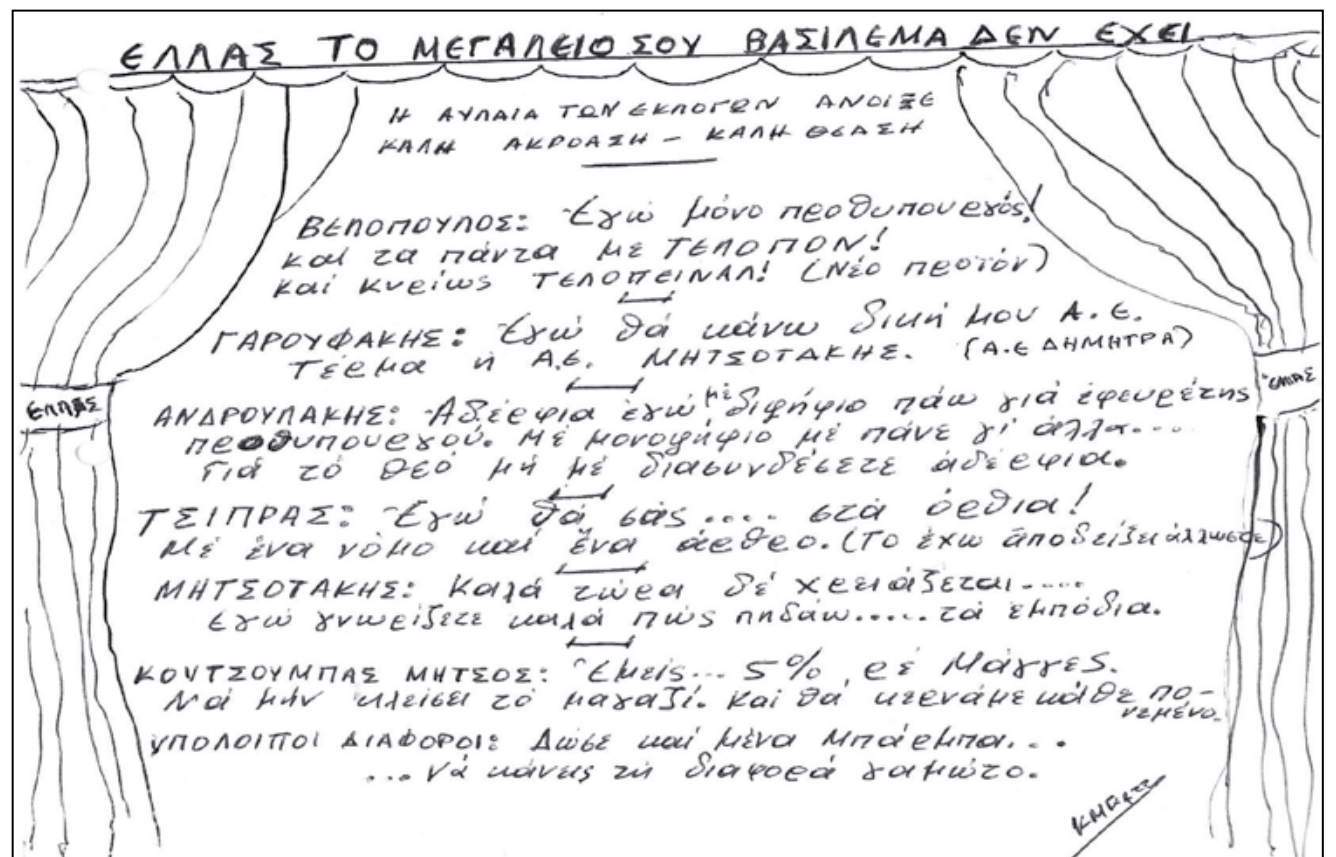 ΕΛΛΑΣ ΤΟ ΜΕΓΑΛΕΙΟ ΣΟΥ ΒΑΣΙΛΕΜΑ ΔΕΝ ΕΧΕΙ
Η ΑΥΛΑΙΑ ΤΩΝ ΕΚΛΟΓΩΝ ΑΝΟΙΞΕ
ΚΑΛΗ ΑΚΡΟΑΣΗ – ΚΑΛΗ ΘΕΑΣΗ
ΒΕΛΟΠΟΥΛΟΣ: Ἐγώ μόνο πρωθυπουργός!
και τα πάντα με ΤΕΛΟΠΟΝ!
καί κυρίως ΤΕΛΟΠΕΙΝΑΛ! (Νέο προϊόν)
ΓΑΡΟΥΦΑΚΗΣ: Ἐγώ θά κάνω δική μου Α.Ε.
Τέρμα ἡ Α.Ε. ΜΗΤΣΟΤΑΚΗΣ. (Α.Ε ΔΗΜΗΤΡΑ)
ΕΛΛΑΣ
ΕΛΛΑΣ
ΑΝΔΡΟΥΛΑΚΗΣ: Ἀδέρφια ἐγώ μέ διψήφιο πάω γιά ἐφευρέτης
πρωθυπουργού. Μέ μονοψήφιο μέ πάνε γι' ἄλλα....
Γιά τό θεό μή μέ διασυνδέσετε ἀδέρφια.
ΤΣΙΠΡΑΣ: Ἐγώ θά σάς .... στά όρθια!
Μέ ἕνα νόμο καί ἕνα άρθρο. (Το ἔχω ἀποδείξει ἄλλωστε)
ΜΗΤΣΟΤΑΚΗΣ: Καλά τώρα δέ χρειάζεται....
Εγώ γνωρίζετε καλά πώς πηδάω..... τά εμπόδια.
ΚΟΥΤΣΟΥΜΠΑΣ ΜΗΤΣΟΣ: Ἐμείς... 5% ρέ Μάγγες.
Νά μήν κλείσει τό μαγαζί. Καί θά κερνάμε κάθε πο-
νεμένο.
ΥΠΟΛΟΙΠΟΙ ΔΙΑΦΟΡΟΙ: Δώσε καί μένα Μπάρμπα...
... νά κάνεις τή διαφορά γαμώτο.